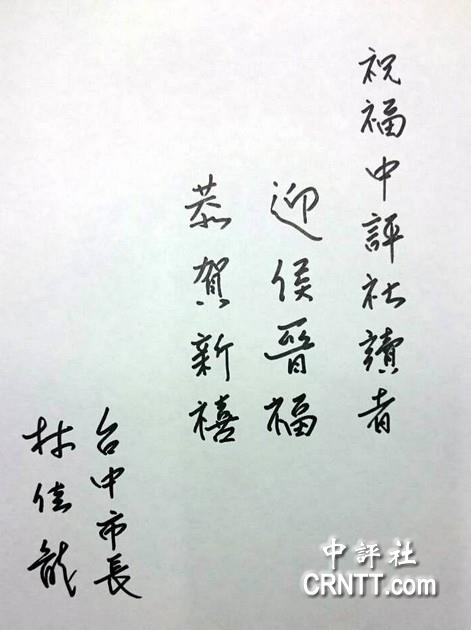 祝福中評社讀者
迎侯晉福
恭賀新禧
台中市長
林佳龍
中評社
CRNTT.com